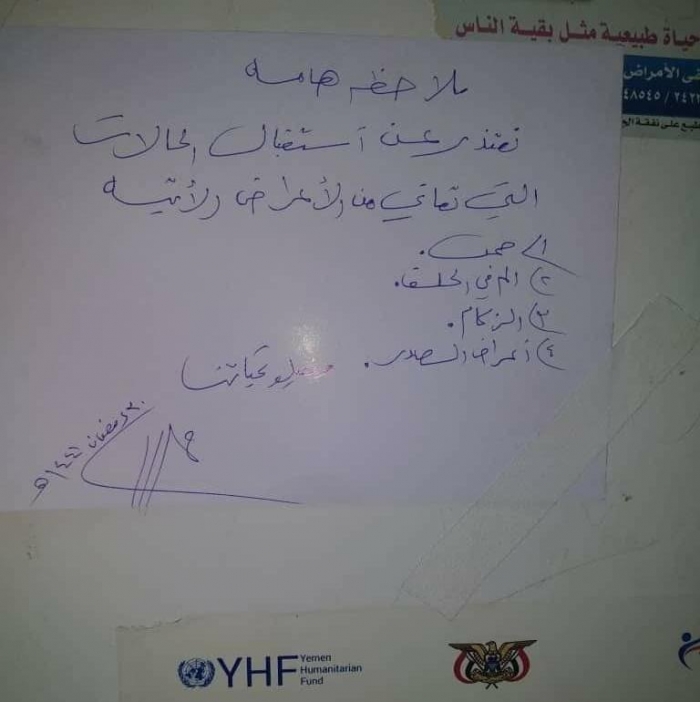 حياة طبيعية مثل بقية الناس
في الأمراض
٢٤٢٢ / ٤٨٥٤٥
ملاحظه هامه
نعتذر عن أستقبال الحالات
التي تعاني من الأمراض الأتيه
١) حمى.
٢) الم في الحلق.
٣) الزكام.
٤) أمراض الصدر. وتقبلو تحياتنا
رمضان ١٤٤١ه
YHF Yemen
Humanitarian
Fund